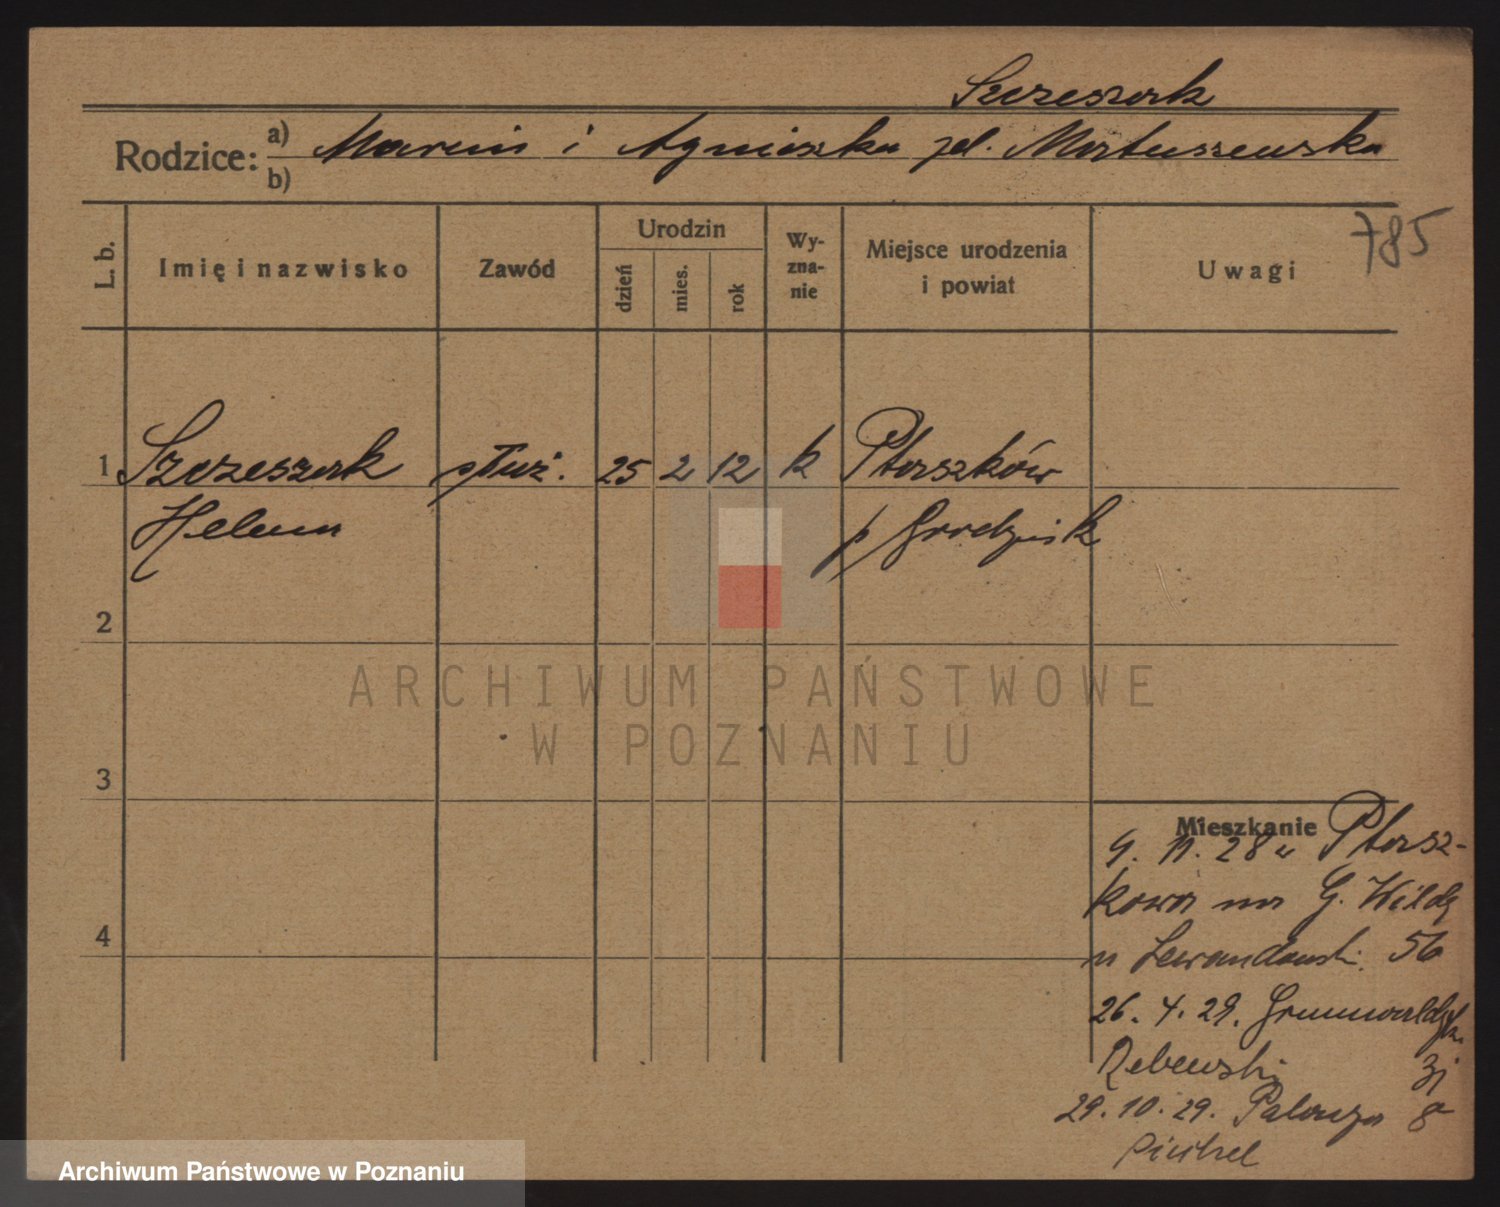 Szczeszak
Rodzice: a) Marcin i Agnieszka zd. Matuszewska
b)
785
L. b.
Imię i nazwisko
Zawód
Urodzin
dzień
mies.
rok
Wy-
zna-
nie
Miejsce urodzenia
i powiat
Uwagi
1 Szczeszak służ. 25 2 12 k Ptaszków
Helena p/ Grodzisk
2
ARCHIWUM PAŃSTWOWE
W POZNANIU
3
Mieszkanie
9. 11. 28 z Ptasz-
kowa na G. Wildę
u Lewandowski. 56
4
26. 4. 29. Grunwaldzka
31
29. 10. 29. Palacza 8
Archiwum Państwowe w Poznaniu